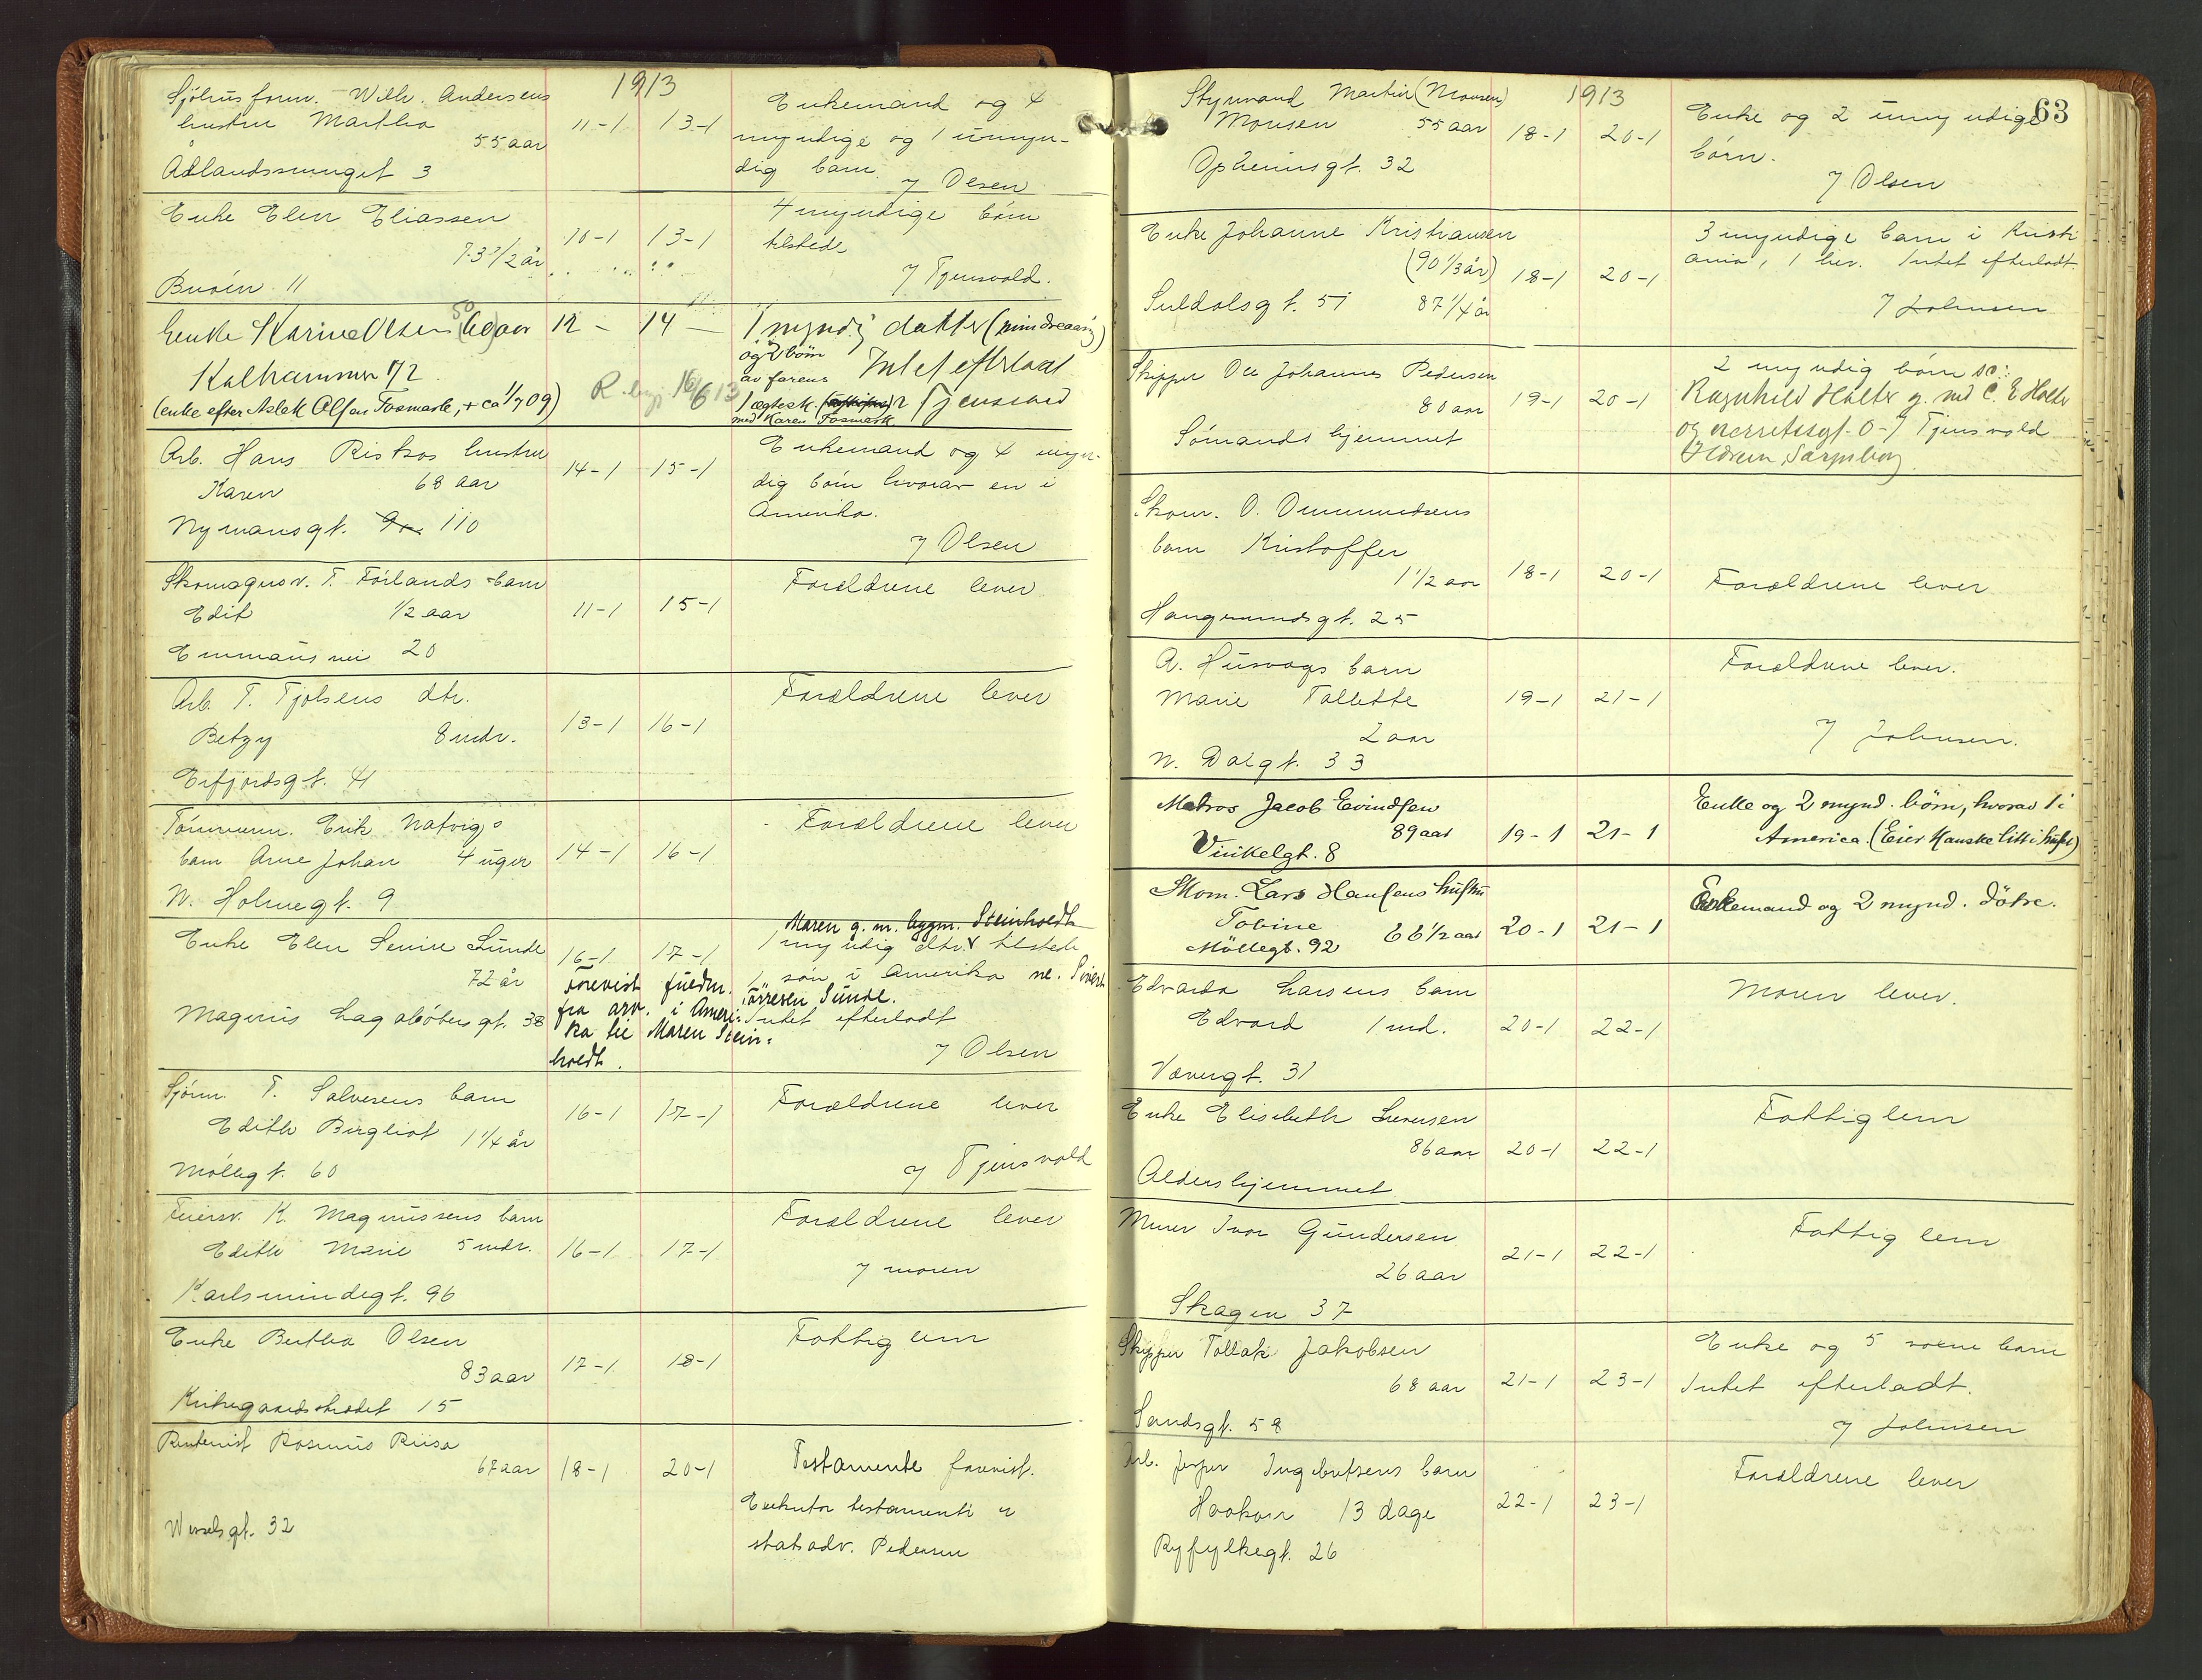 1913
Sjøhusform. Wilh. Andersens
hustru Martha
55 aar
Ådlandssmuget 3
11-1 13-1
Enkemand og 4
myndige og 1 umyn-
dig barn.
/ Olsen
Enke Elen Eliassen
73 1/2 år
Buøen 11
10-1 13-1
4 myndige børn
tilstede
/ Tjensvold.
Enke Karine Olsen (60) aar
50
Kalhammer 172
(enke efter Aslak Olsen Fosmark, + ca 1/7 09)
12 - 14 -
R. 16/6 13
1 myndig datter (mindreaarig)
og 2 børn
av farens
Intet efterladt
1 ægtesk.
med Karen Fosmark
/ Tjensvold
Arb. Hans Riskas hustru
Karen 68 aar
Nymansgt. 110
14-1 15-1
Enkemand og 4 myn-
dig børn hvorav en i
Amerika.
/ Olsen
Skomagersv. T. Førlands barn
Edit 1/2 aar
Emmaus vei 20
11-1 15-1
Forældrene lever
Arb. T. Tjølsens dtr.
Betzy 8 mdr.
Erfjordsgt. 41
13-1 16-1
Forældrene lever
Tømmerm. Erik Natvigs
barn Arne Johan 4 uger
N. Holmegt. 9
14-1 16-1
Forældrene lever
Enke Elen Serine Sunde
72 år
Magnus Lagabøters gt. 38
16-1 17-1
Forevist fuldm.
fra arv. i Ameri-
ka til Maren Stein-
holdt.
Maren g. m. bygm. Steinholdt
1 myndig dtr. tilstede
1 søn i Amerika ne. Sivert
Tørresen Sunde.
Intet efterladt
/ Olsen
Sjøm. T. Salvesens barn
Edith Bergliot 1 1/4 år
Møllegt. 60
16-1 17-1
Forældrene lever
/ Tjensvold
Feiersv. K. Magnussens barn
Edith Marie 5 mdr.
Karlsmindegt. 96
16-1 17-1
Forældrene lever
/ moren
Enke Bertha Olsen
83 aar
Kirkegaardsstrædet 15
17-1 18-1
Fattiglem
Rentenist Rasmus Riisa
67 aar
Wesselsgt. 32
18-1 20-1
Testamente forevist.
Exekutor testamenti er
statsadv. Pedersen
63
1913
Styrmand Martin (Monsen)
Monsen 55 aar
Opheimsgt. 32
18-1 20-1
Enke og 2 umyndige
børn.
/ Olsen
Enke Johanne Kristiansen
(90 1/3 år)
Suldalsgt. 51 87 1/4 år
18-1 20-1
3 myndige barn i Kristi
ania, 1 her. Intet efterladt.
/ Johnsen
Skipper Ole Johannes Pedersen
80 aar
Sømandshjemmet
19-1 20-1
2 myndig børn sc:
Ragnhild Holter g. med C. E Holter
og O. / Tjensvold
Sarpsborg
Skom. O. Ommundsens
barn Kristoffer
1 1/2 aar
Haugesundsgt. 25
18-1 20-1
Forældrene lever
A. Husvags barn
Marie Tallette
2 aar
N. Dalgt. 33
19-1 21-1
Forældrene lever.
/ Johnsen.
Matros Jacob Eevindsen
89 aar
Vinkelgt. 8
19-1 21-1
Enke og 2 mynd. børn, hvorav 1 i
America. (Eier kanske litt i huset)
Skom. Lars Hansens hustru
Tobine 66 1/2 aar
Møllegt. 92
20-1 21-1
Enkemand og 2 mynd. døtre.
Edvarda Larsens barn
Edvard 1 md.
Vævergt. 31
20-1 22-1
Moren lever.
Enke Elisabeth Sivertsen
86 aar
Aldershjemmet
20-1 22-1
Fattiglem
Murer Ivar Gundersen
26 aar
Skagen 37
21-1 22-1
Fattig lem
Skipper Tollak Jakobsen
68 aar
Sandsgt. 58
21-1 23-1
Enke og 5 voxne barn
Intet efterladt.
/ Johnsen
Arb. Jesper Ingebretsens barn
Haakon 13 dage
Ryfylkegt. 26
22-1 23-1
Forældrene lever